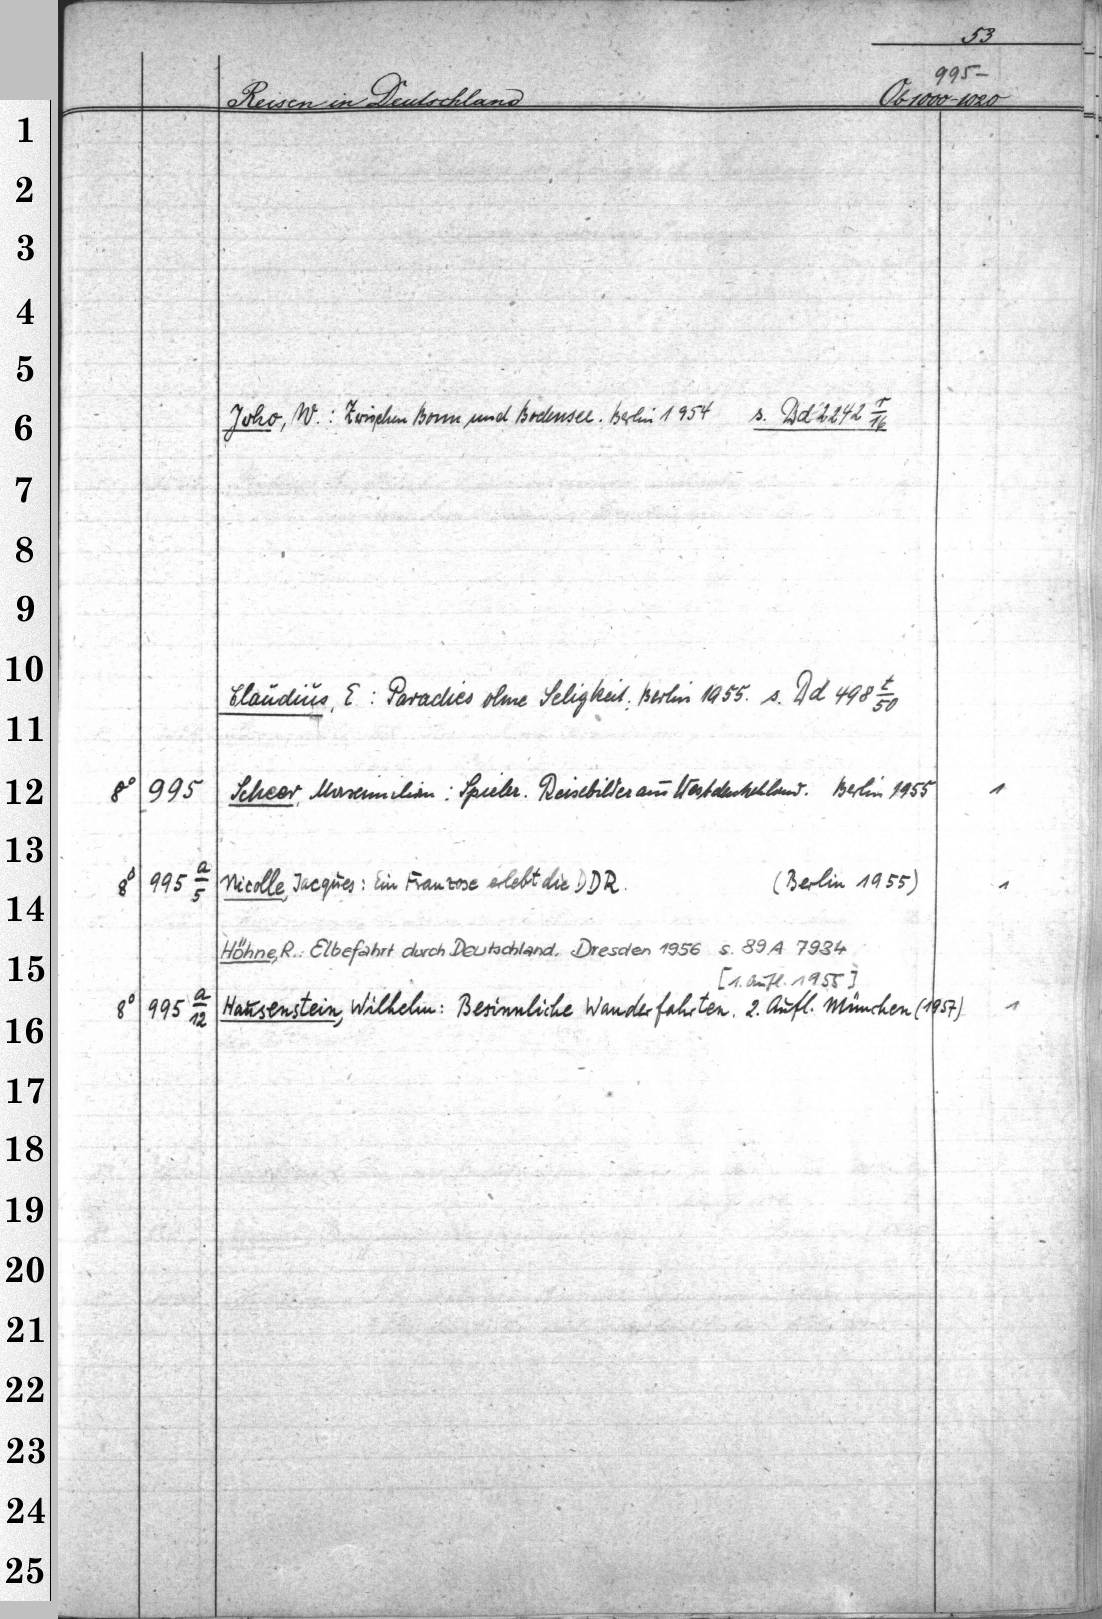 53
995-
Reisen in Deutschland Ob 1000-1020
1
2
3
4
5
6
Joho, W.: Zwischen Bonn und Bodensee. Berlin 1954 s. Dd 2242 r/16
7
8
9
10
Claudius, E: Paradies ohne Seligkeit. Berlin 1955. s. Dd 498 t/50
11
12
8° 995 Scheer, Maximilian: Spieler. Reisebilder aus Westdeutschland. Berlin 1955 1
13
8° 995 a/5 Nicolle, Jacques: Ein Franzose erlebt die DDR. (Berlin 1955) 1
14
Höhne, R.: Elbefahrt durch Deutschland. Dresden 1956 s. 89 A 7934
15
[1. Aufl. 1955]
8° 995 a/12 Hausenstein, Wilhelm: Besinnliche Wanderfahrten. 2. Aufl. München (1957) 1
16
17
18
19
20
21
22
23
24
25